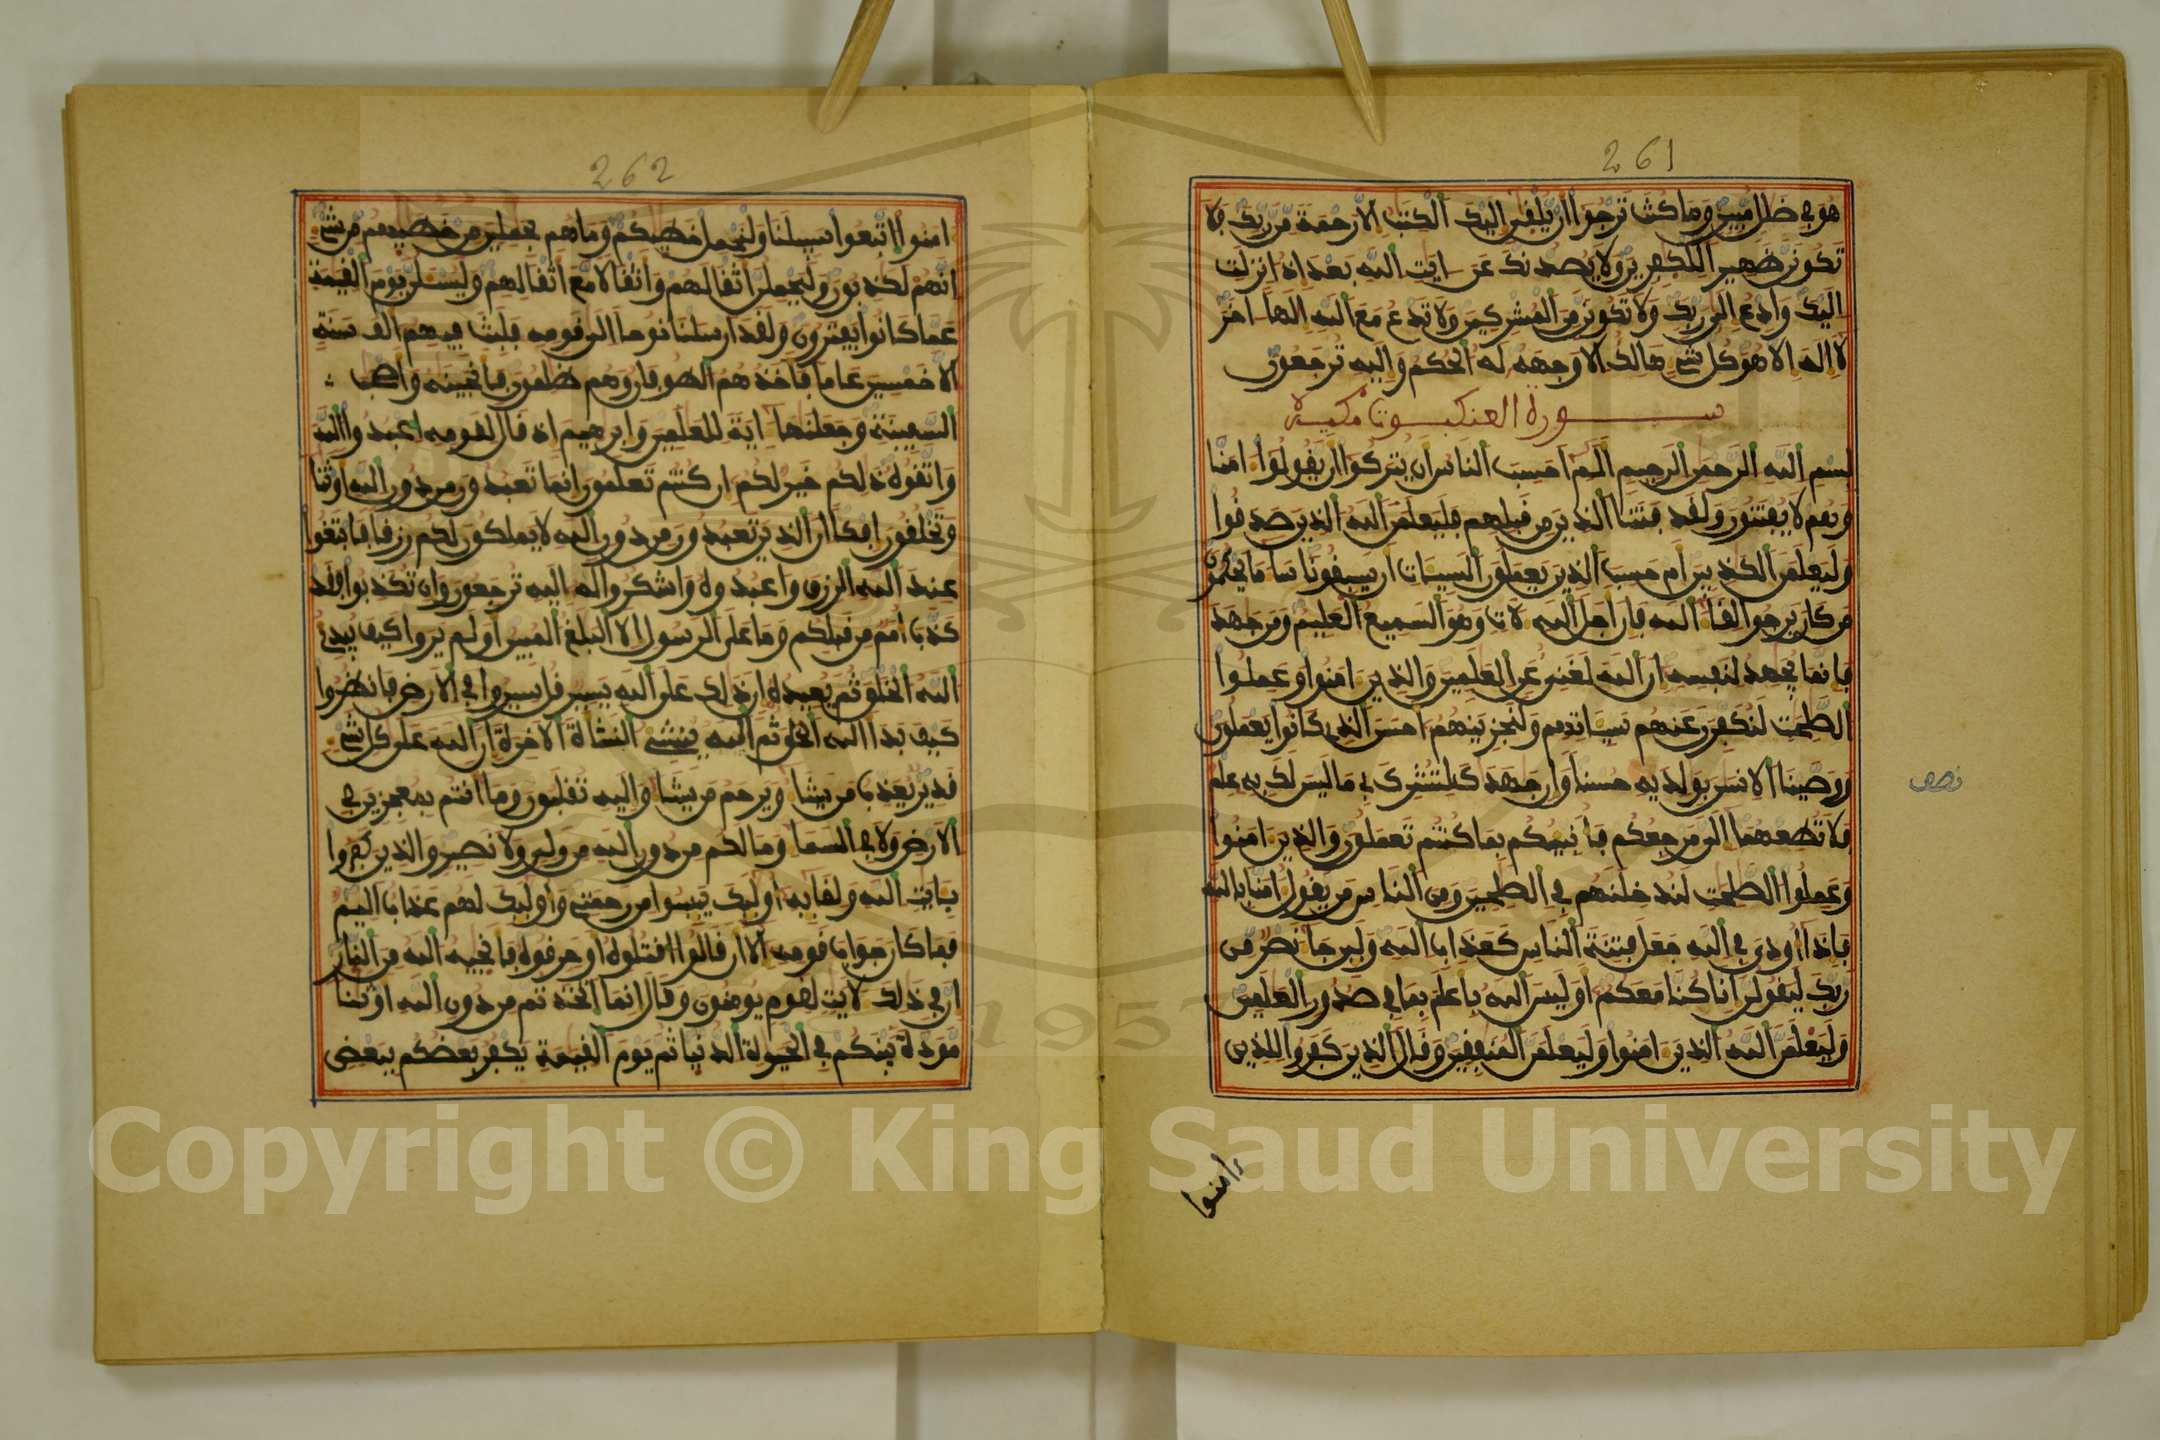 261
هو في ضلل مبين وما كنت ترجوا ان يلقى اليك الكتب الا رحمة من ربك فلا
تكونن ظهيرا للكفرين ولا يصدنك عن ايت الله بعد اذ انزلت
اليك وادع الى ربك ولا تكونن من المشركين ولا تدع مع الله الها اخر
لا اله الا هو كل شيء هالك الا وجهه له الحكم واليه ترجعون
سورة العنكبوت مكية
بسم الله الرحمن الرحيم الم احسب الناس ان يتركوا ان يقولوا امنا
وهم لا يفتنون ولقد فتنا الذين من قبلهم فليعلمن الله الذين صدقوا
وليعلمن الكذبين ام حسب الذين يعملون السيات ان يسبقونا سا ما يحكمون
من كان يرجوا لقا الله فان اجل الله لات وهو السميع العليم ومن جهد
فانما يجهد لنفسه ان الله لغني عن العلمين والذين امنوا وعملوا
الصلحت لنكفرن عنهم سياتهم ولنجزينهم احسن الذي كانوا يعملون
ووصينا الانسن بولديه حسنا وان جهدك لتشرك بي ما ليس لك به علم
فلا تطعهما الي مرجعكم فانبيكم بما كنتم تعملون والذين امنوا
وعملوا الصلحت لندخلنهم في الصلحين ومن الناس من يقول امنا بالله
فاذا اوذي في الله جعل فتنة الناس كعذاب الله ولين جا نصر من
ربك ليقولن انا كنا معكم اوليس الله باعلم بما في صدور العلمين
وليعلمن الله الذين امنوا وليعلمن المنفقين وقال الذين كفروا للذين
نصف
امنوا
262
امنوا اتبعوا سبيلنا ولنحمل خطيكم وما هم بحملين من خطيهم من شيء
انهم لكذبون وليحملن اثقالهم واثقالا مع اثقالهم وليسلن يوم القيمة
عما كانوا يفترون ولقد ارسلنا نوحا الى قومه فلبث فيهم الف سنة
الا خمسين عاما فاخذهم الطوفان وهم ظلمون فانجينه واصحب
السفينة وجعلنها اية للعلمين وابرهيم اذ قال لقومه اعبدوا الله
واتقوه ذلكم خير لكم ان كنتم تعلمون انما تعبدون من دون الله اوثنا
وتخلقون افكا ان الذين تعبدون من دون الله لا يملكون لكم رزقا فابتغوا
عند الله الرزق واعبدوه واشكروا له اليه ترجعون وان تكذبوا فقد
كذب امم من قبلكم وما على الرسول الا البلغ المبين اولم يروا كيف يبدئ
الله الخلق ثم يعيده ان ذلك على الله يسير قل سيروا في الارض فانظروا
كيف بدا الله الخلق ثم الله ينشئ النشاة الاخرة ان الله على كل شيء
قدير يعذب من يشا ويرحم من يشا واليه تقلبون وما انتم بمعجزين في
الارض ولا في السما وما لكم من دون الله من ولي ولا نصير والذين كفروا
بايت الله ولقايه اوليك ييسوا من رحمتي واوليك لهم عذاب اليم
فما كان جواب قومه الا ان قالوا اقتلوه او حرقوه فانجيه الله من النار
ان في ذلك لايت لقوم يومنون وقال انما اتخذتم من دون الله اوثنا
مودة بينكم في الحيوة الدنيا ثم يوم القيمة يكفر بعضكم ببعض
1957
Copyright © King Saud University